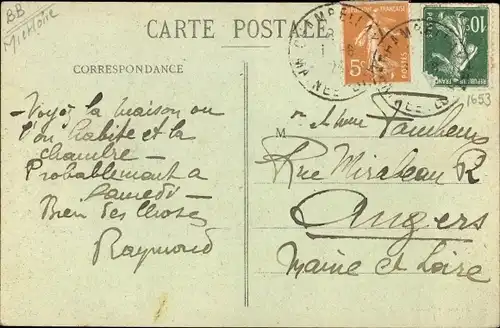 BB
M et Loire
CARTE POSTALE
CORRESPONDANCE
Voyez la maison ou
l'on habite et la
chambre —
Probablement a
Samedi —
Bien des choses
Raymond
CHAMPELLIN
5c
POSTES
10c
1653
M
Rue Mirabeau
Angers
Maine et Loire